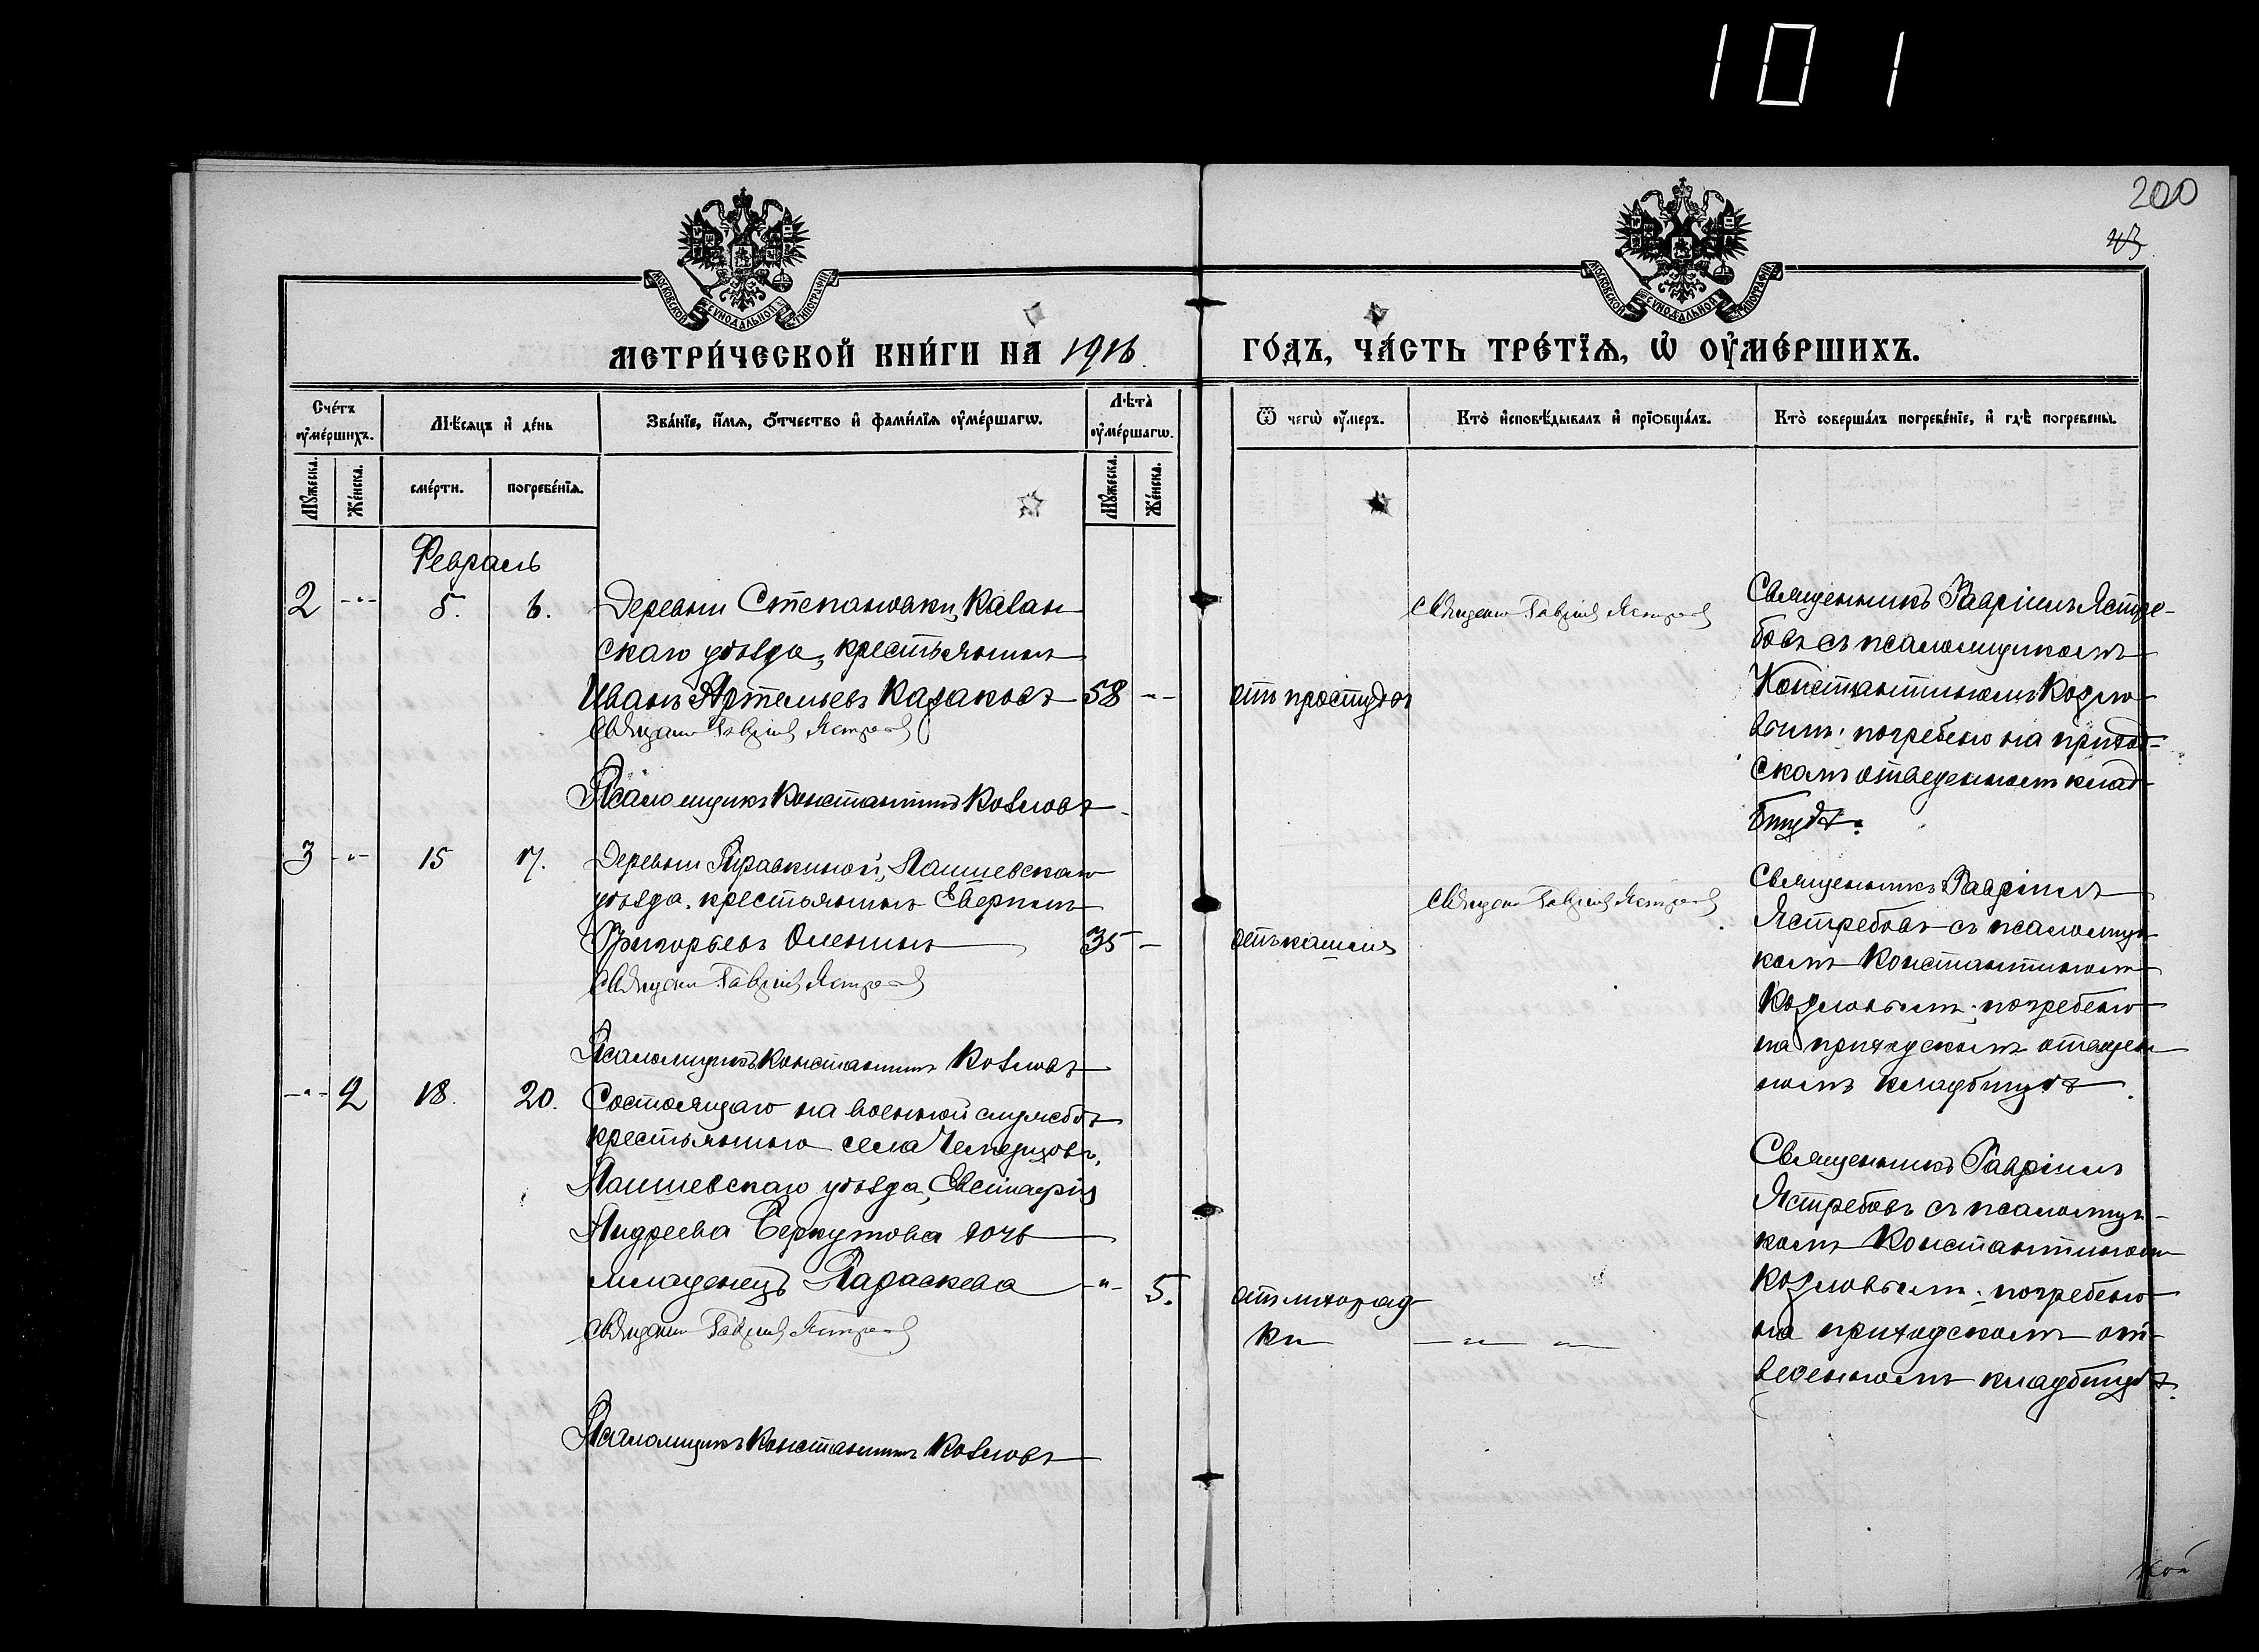 101
200
МОСКОВСКОЙ СѴНОДАЛЬНОЙ ТИПОГРАФІИ
МОСКОВСКОЙ СѴНОДАЛЬНОЙ ТИПОГРАФІИ
МЕТРИ́ЧЕСКОЙ КНИ́ГИ НА 1916 ГО́ДЪ, ЧА́СТЬ ТРЕ́ТЇѦ, Ѡ҆ ОУ҆МЕ́РШИХЪ.
Сче́тъ оу҆ме́ршихъ.
Мѣ́сяцъ и҆ де́нь
Зва́нїе, и҆́мѧ, ѻ҆́тчество и҆ фами́лїѧ оу҆ме́ршагѡ.
Лѣта̀ оу҆ме́ршагѡ.
Ѿ чегѡ̀ оу҆́меръ.
Кто̀ и҆сповѣ́дывалъ и҆ прїѡбща́лъ.
Кто̀ соверша́лъ погребе́нїе, и҆ гдѣ̀ погребены̀.
Мꙋ́жеска.
Же́нска.
сме́рти.
погребе́нїѧ.
Мꙋ́жеска.
Же́нска.
Февраль
2 -"- 5. 6. Деревни Степановки, Казан
скаго уѣзда, крестьянинъ
Иванъ Артемьевъ Казаковъ 58 -"-
Священникъ Гавріилъ Ястребовъ
Псаломщикъ Константинъ Козловъ
отъ простуды
Священникъ Гавріилъ Ястребовъ
Священникъ Гавріилъ Ястре-
бовъ съ псаломщикомъ
Константиномъ Козло
вымъ; погребенъ на приход-
скомъ отведенномъ клад
бищѣ.
3 -"- 15 17. Деревни Травкиной, Лаишевскаго
уѣзда, крестьянинъ
Григорьевъ Оленинъ 35 -
Священникъ Гавріилъ Ястребовъ
Псаломщикъ Константинъ Козловъ
отъ кашля
Священникъ Гавріилъ Ястребовъ
Священникъ Гавріилъ
Ястребовъ съ псаломщи
комъ Константиномъ
Козловымъ; погребенъ
на приходскомъ отведен
номъ кладбищѣ.
-"- 2 18. 20. Состоящаго на военной службѣ
крестьянина села
Лаишевскаго уѣзда, Евстафія
Андреева Беркутова дочь
младенецъ Параскева -"- 5.
Священникъ Гавріилъ Ястребовъ
Псаломщикъ Константинъ Козловъ
отъ лихорад
ки
Священникъ Гавріилъ
Ястребовъ съ псаломщи-
комъ Константиномъ
Козловымъ; погребенъ
на приходскомъ от-
веденномъ кладбищѣ.